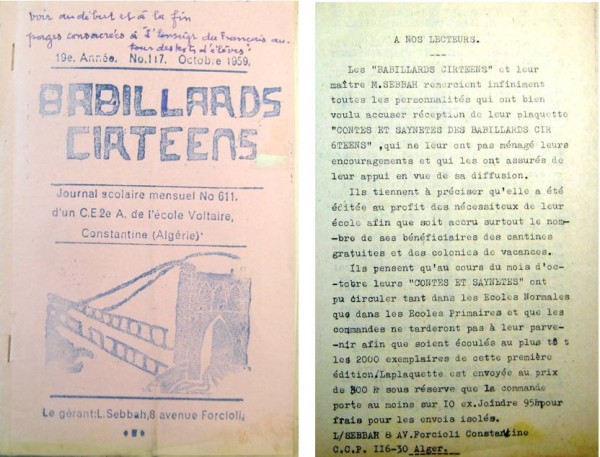 Voir au début et à la fin
pages consacrées à l'enseign du Français au-
tour des textes d'élèves.
19e. Année. No.117. Octobre 1959.
BABILLARDS
CIRTEENS
Journal scolaire mensuel No 611.
d'un C.E.2e A. de l'école Voltaire,
Constantine (Algérie)
Le gérant:L.Sebbah,8 avenue Forcioli.
A NOS LECTEURS.
Les "BABILLARDS CIRTEENS" et leur
maître M.SEBBAH remercient infiniment
toutes les personnalités qui ont bien
voulu accuser réception de leur plaquette
"CONTES ET SAYNETES DES BABILLARDS CIR
6TEENS" ,qui ne leur ont pas ménagé leurs
encouragements et qui les ont assurés de
leur appui en vue de sa diffusion.
Ils tiennent à préciser qu'elle a été
éditée au profit des nécessiteux de leur
école afin que soit accru surtout le nom-
-bre de ses bénéficiaires des cantines
gratuites et des colonies de vacances.
Ils pensent qu'au cours du mois d'oc-
-tobre leurs "CONTES ET SAYNETES" ont
pu circuler tant dans les Ecoles Normales
que dans les Ecoles Primaires et que les
commandes ne tarderont pas à leur parve-
-nir afin que soient écoulés au plus tôt
les 2000 exemplaires de cette première
édition/Laplaquette est envoyée au prix
de 300 fr sous réserve que la commande
porte au moins sur IO ex.Joindre 95fr pour
frais pour les envois isolés.
L/SEBBAH 8 AV.Forcioli Constantine
C.C.P. II6-30 Alger.